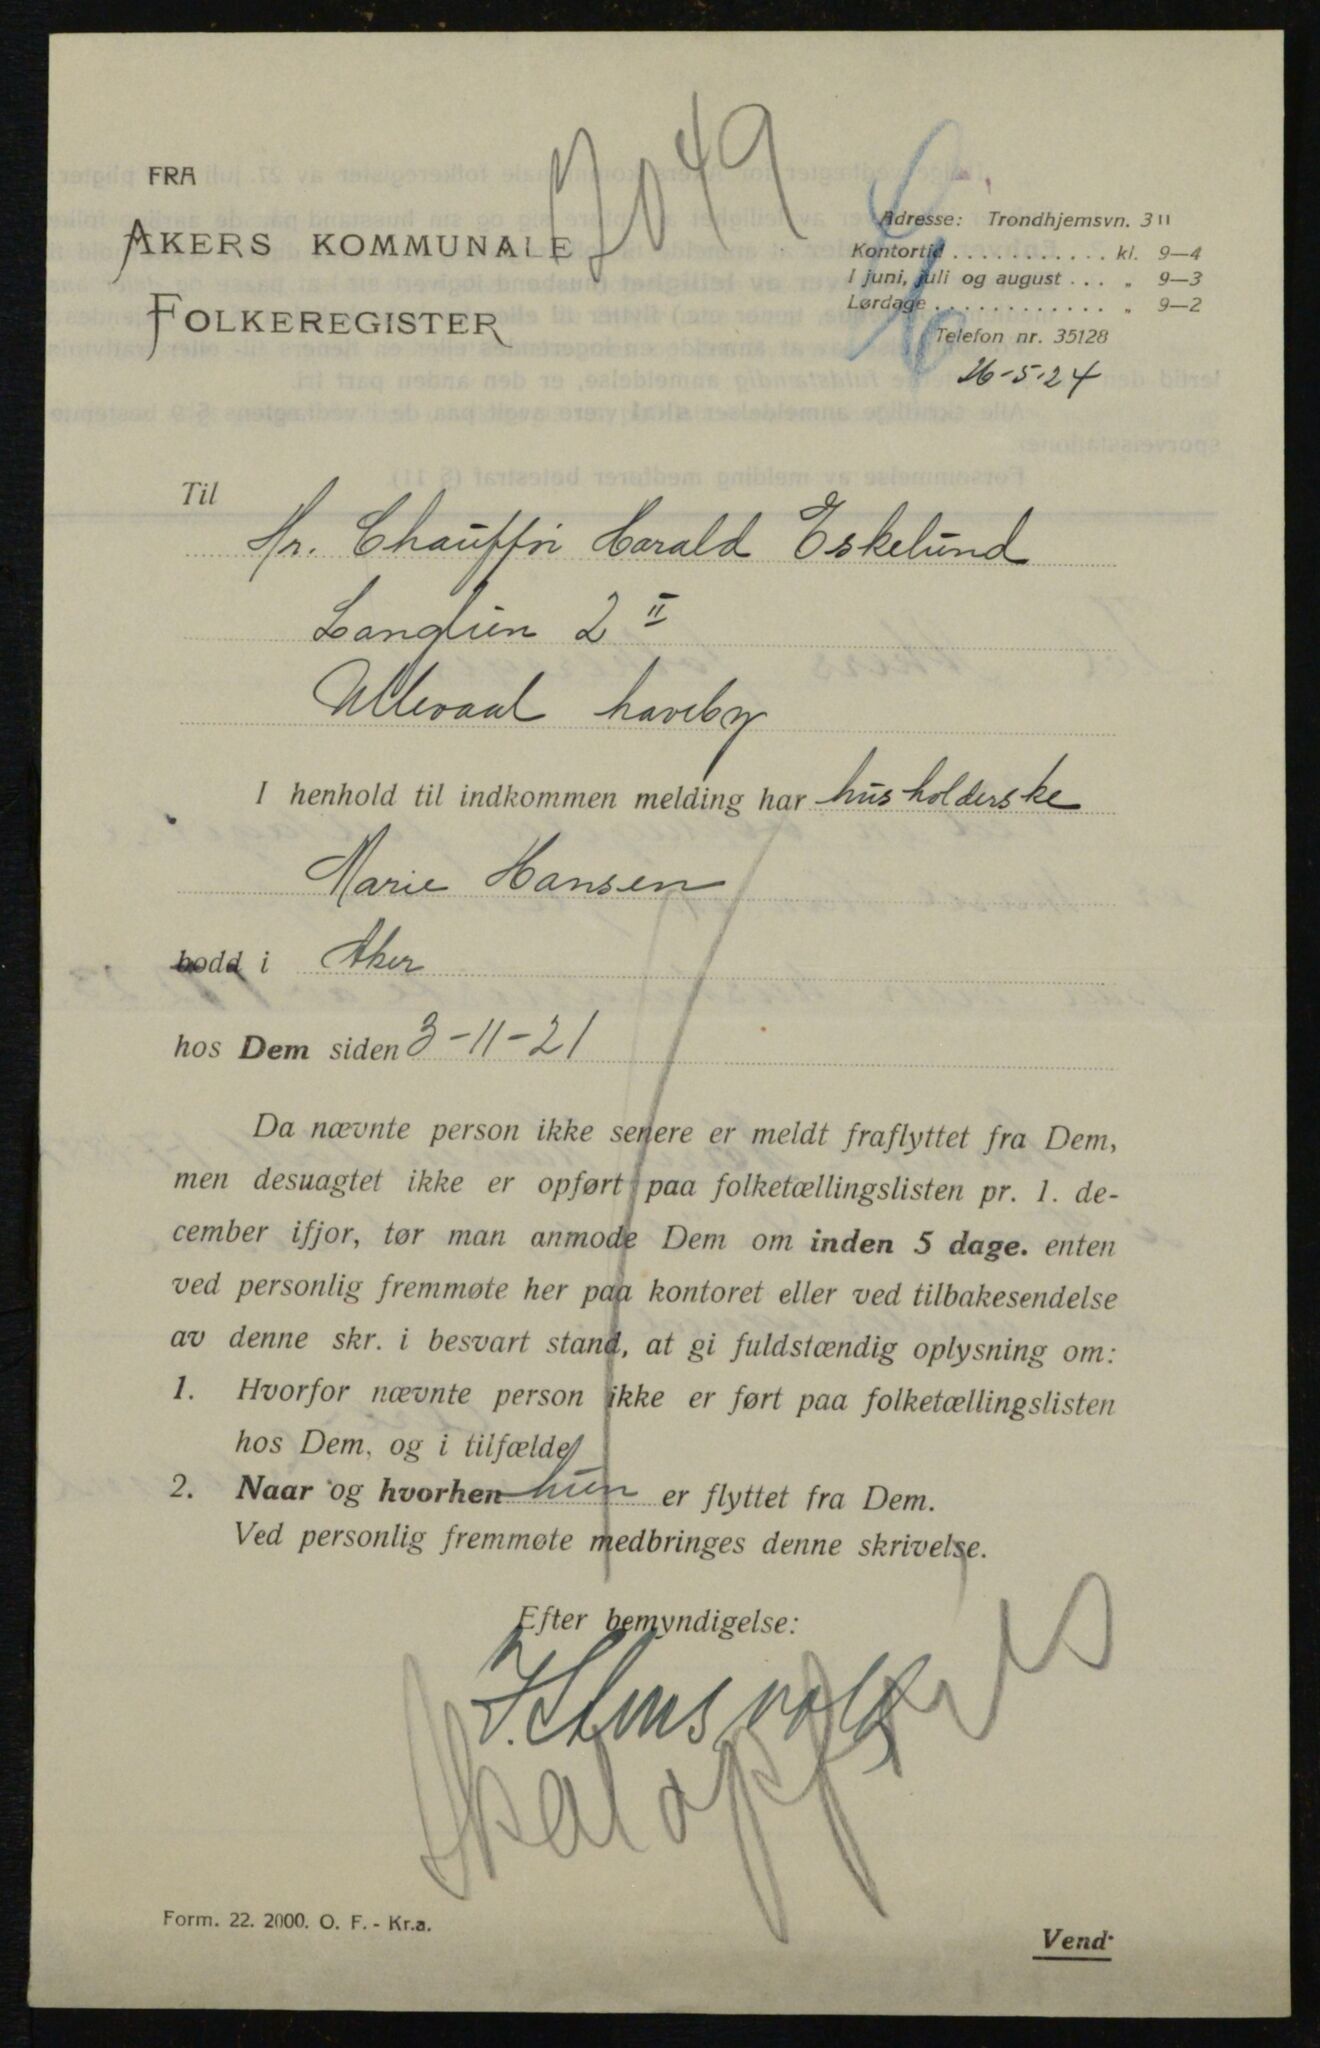 7049
FRA
AKERS KOMMUNALE
FOLKEREGISTER
Adresse: Trondhjemsvn. 3 II
Kontortid . . . . . . . . . . . kl. 9—4
I juni, juli og august . . . „ 9—3
Lørdage . . . . . . . . . . . . „ 9—2
Telefon nr. 35128
26-5-24
Til
Hr. Chauffør Harald Eskelund
Langlien 2 II
Ullevaal haveby
I henhold til indkommen melding har husholderske
Marie Hansen
bodd i Aker
hos Dem siden 3-11-21
Da nævnte person ikke senere er meldt fraflyttet fra Dem,
men desuagtet ikke er opført paa folketællingslisten pr. 1. de-
cember ifjor, tør man anmode Dem om inden 5 dage. enten
ved personlig fremmøte her paa kontoret eller ved tilbakesendelse
av denne skr. i besvart stand, at gi fuldstændig oplysning om:
1. Hvorfor nævnte person ikke er ført paa folketællingslisten
hos Dem, og i tilfælde
2. Naar og hvorhen hun er flyttet fra Dem.
Ved personlig fremmøte medbringes denne skrivelse.
Efter bemyndigelse:
Skal opføres
Form. 22. 2000. O. F. - Kr.a.
Vend